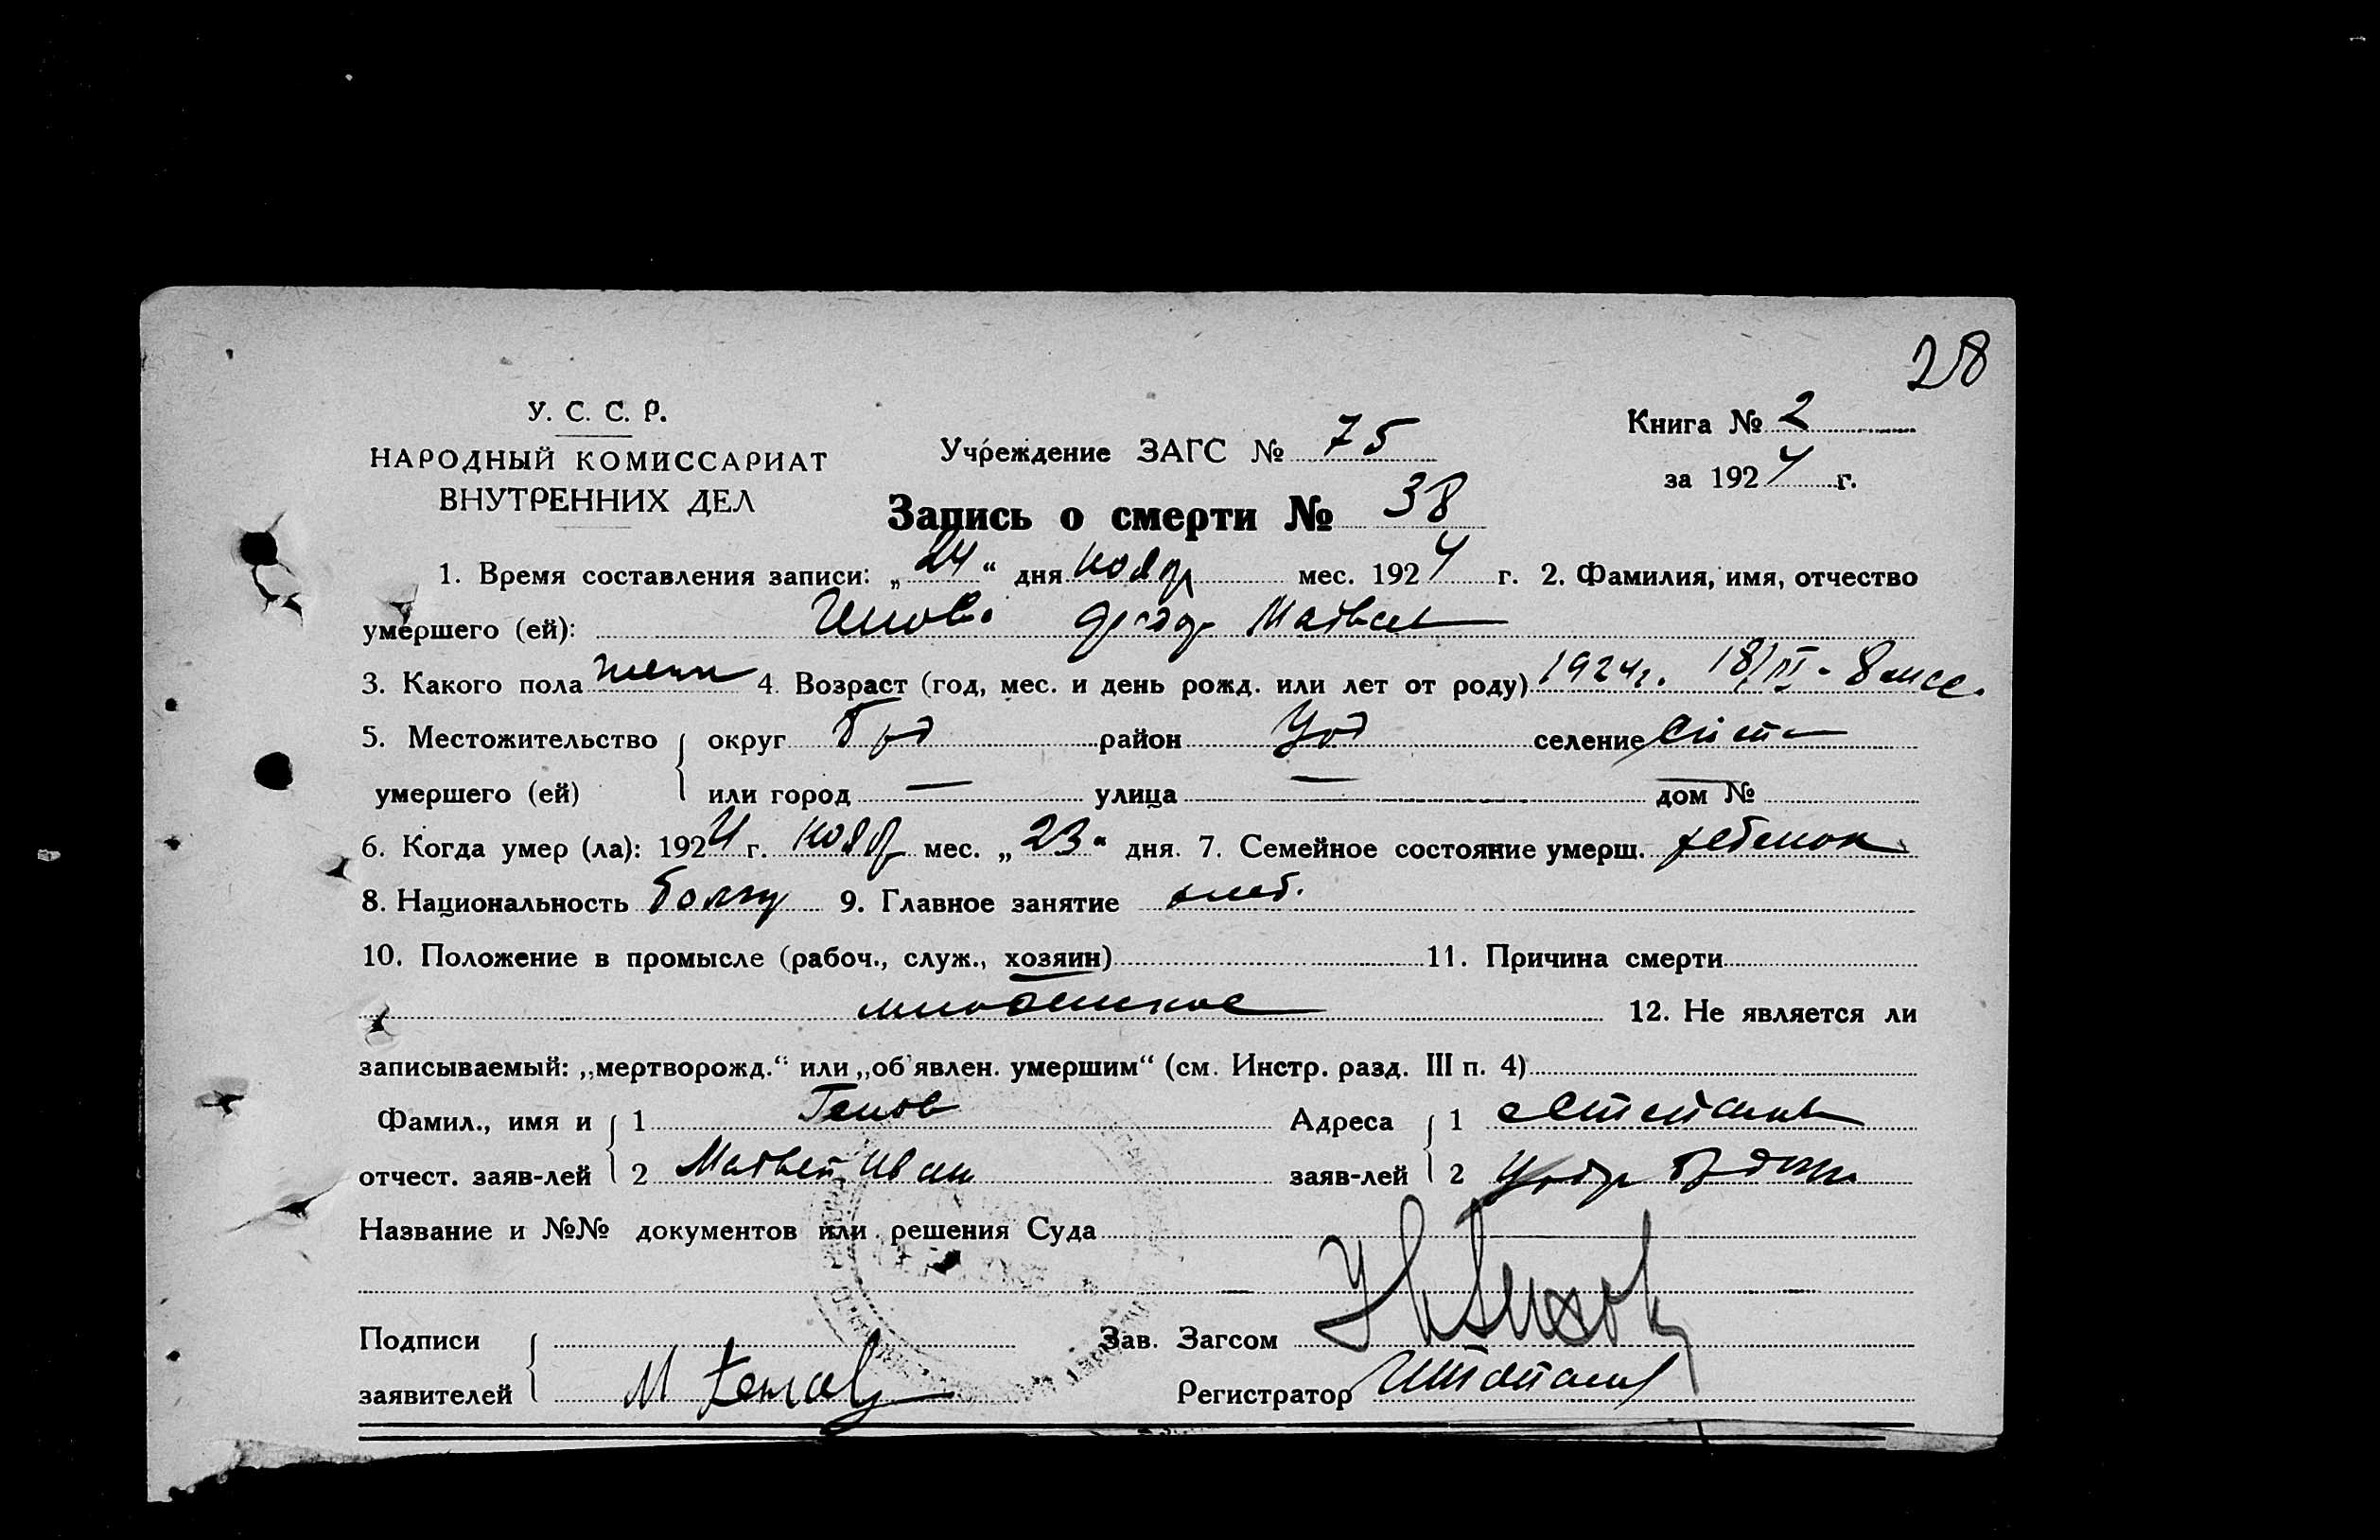 28
У. С. С. Р.
НАРОДНЫЙ КОМИССАРИАТ
ВНУТРЕННИХ ДЕЛ
Учреждение ЗАГС № 75
Книга № 2
за 1924 г.
Запись о смерти № 38
1. Время составления записи: „24“ дня ноябр мес. 1924 г. 2. Фамилия, имя, отчество
умершего (ей): Матвеев
3. Какого пола женн 4. Возраст (год, мес. и день рожд. или лет от роду) 1924г. 18/III - 8 мсе.
5. Местожительство { округ район селение
умершего (ей) или город — улица — дом №
6. Когда умер (ла): 1924 г. ноябр мес. „23“ дня. 7. Семейное состояние умерш. ребенок
8. Национальность болгар 9. Главное занятие хлеб.
10. Положение в промысле (рабоч., служ., хозяин) 11. Причина смерти
12. Не является ли
записываемый: „мертворожд.“ или „об'явлен. умершим“ (см. Инстр. разд. III п. 4)
Фамил., имя и { 1 Генов Адреса { 1
отчест. заяв-лей 2 Матвей Иван заяв-лей 2
Название и №№ документов или решения Суда
Подписи { Зав. Загсом
заявителей М Генов Регистратор